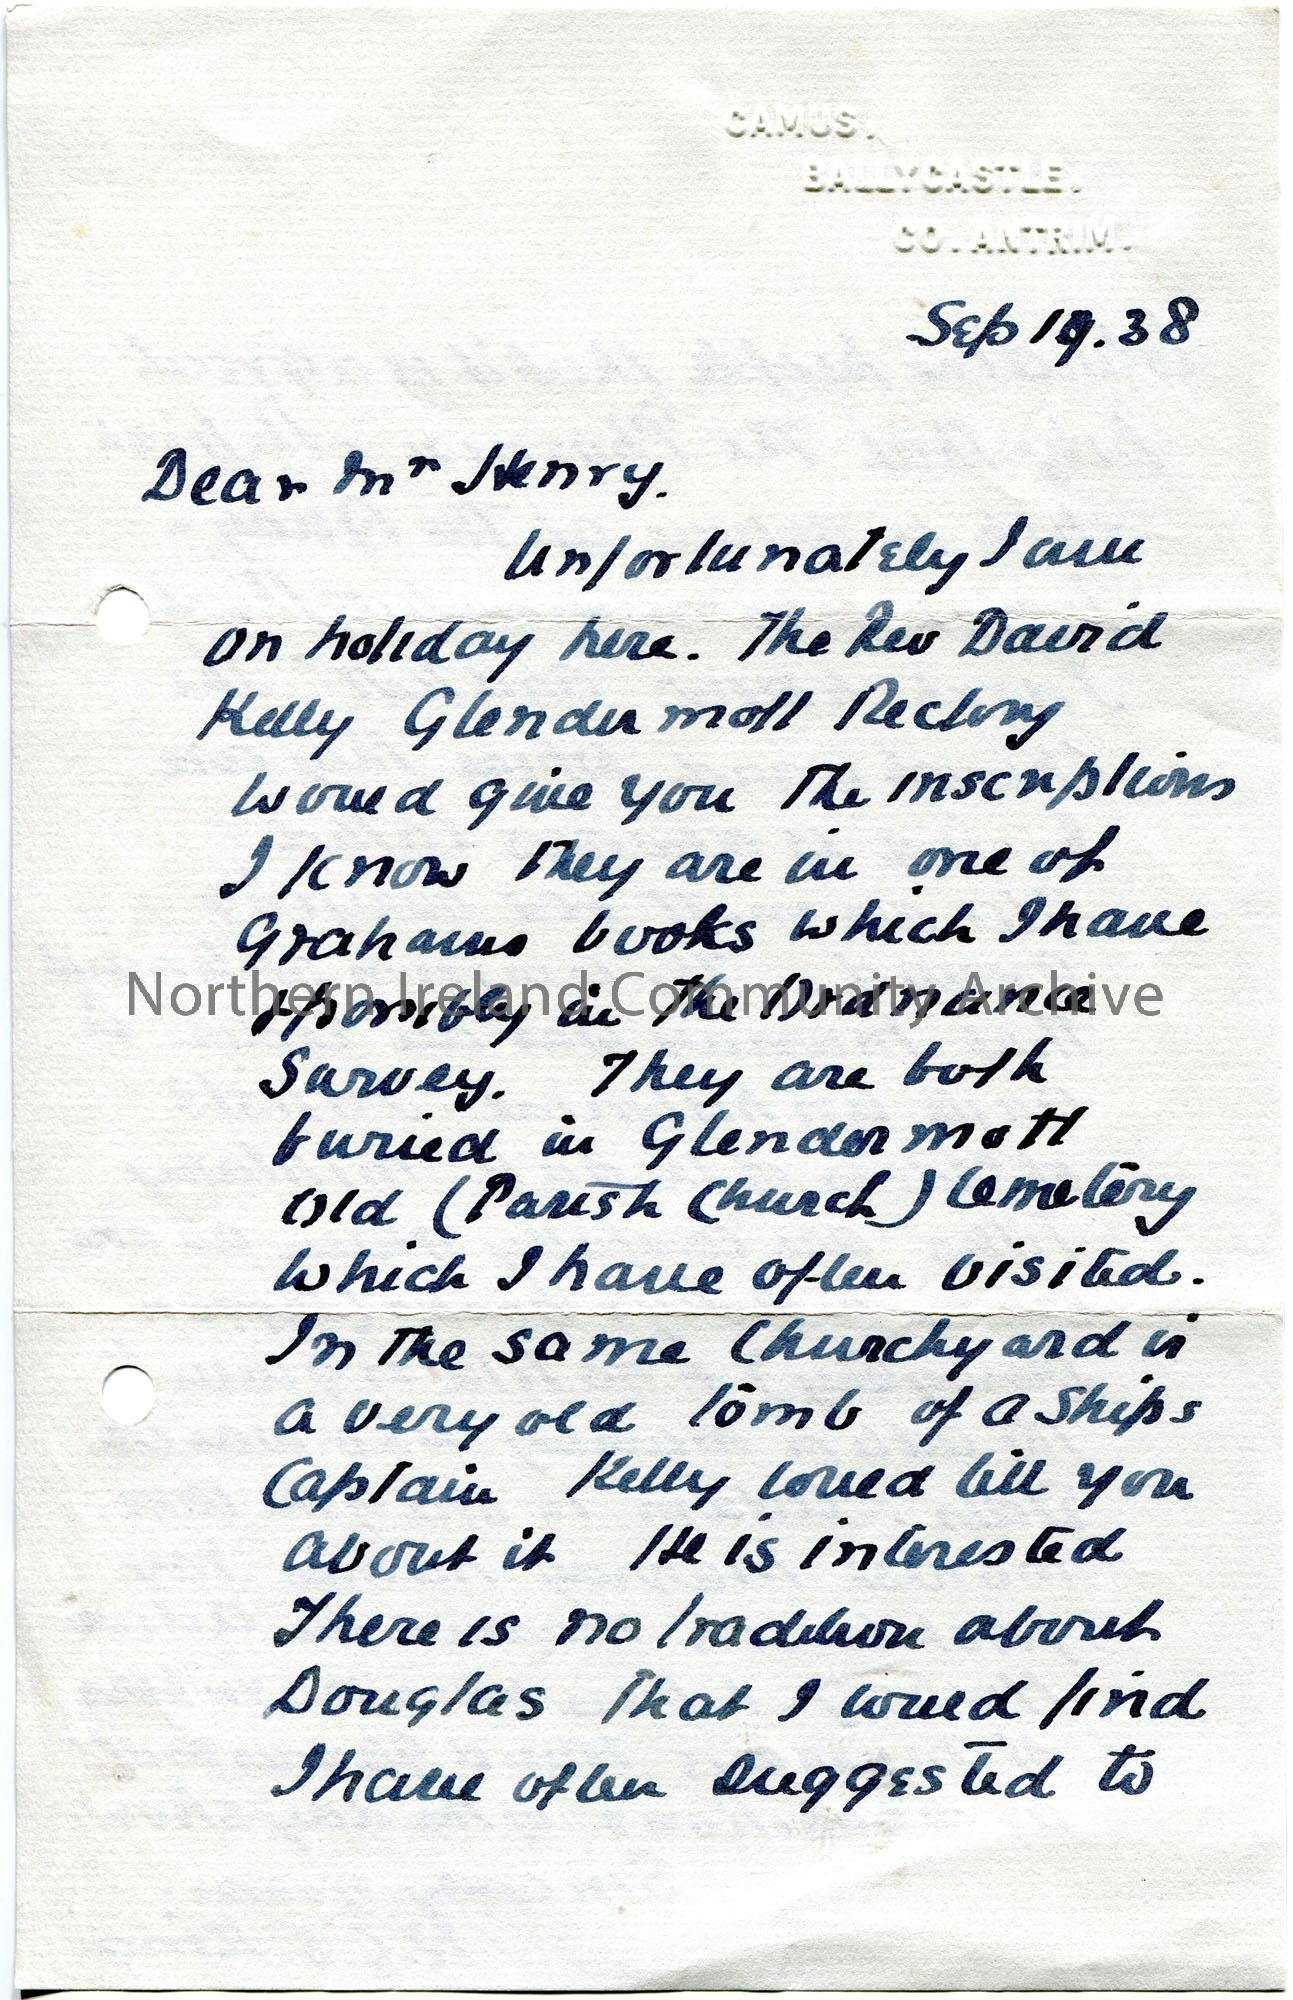 CAMUS.
BALLYCASTLE.
CO. ANTRIM.
Sep 19. 38
Dear Mr Henry.
Unfortunately I am
on holiday here. The Rev David
Kelly Glendermott Rectory
would give you the inscriptions
I know they are in one of
Grahams books which I have
& possibly in the Ordnance
Survey. They are both
buried in Glendermott
Old (Parish Church) Cemetery
which I have often visited.
In the same Churchyard is
a very old tomb of a Ships
Captain Kelly would tell you
about it He is interested
There is no tradition about
Douglas that I would find
I have often suggested to
Northern Ireland Community Archive